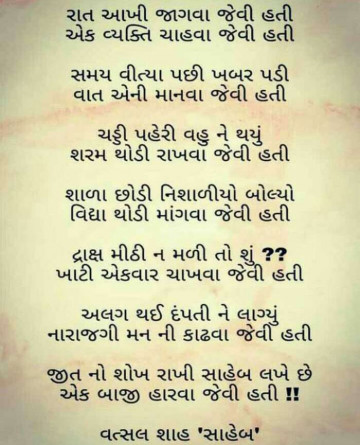 રાત આખી જાગવા જેવી હતી
એક વ્યક્તિ ચાહવા જેવી હતી
સમય વીત્યા પછી ખબર પડી
વાત એની માનવા જેવી હતી
ચડ્ડી પહેરી વહુ ને થયું
શરમ થોડી રાખવા જેવી હતી
શાળા છોડી નિશાળીયો બોલ્યો
વિદ્યા થોડી માંગવા જેવી હતી
દ્રાક્ષ મીઠી ન મળી તો શું ??
ખાટી એકવાર ચાખવા જેવી હતી
અલગ થઈ દંપતી ને લાગ્યું
નારાજગી મન ની કાઢવા જેવી હતી
જીત નો શોખ રાખી સાહેબ લખે છે
એક બાજી હારવા જેવી હતી !!
વત્સલ શાહ 'સાહેબ'